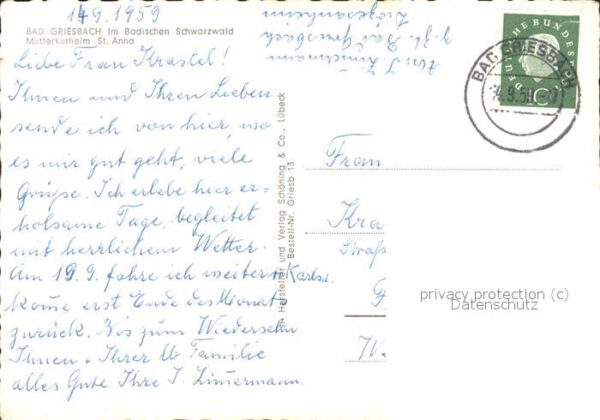 14.9.1959
BAD GRIESBACH im Badischen Schwarzwald
Mütterkurheim St. Anna
Liebe Frau Krastel!
Ihnen und Ihren Lieben
sende ich von hier, wo
es mir gut geht, viele
Grüße. Ich erlebe hier er-
holsame Tage, begleitet
mit herrlichem Wetter.
Am 19.9. fahre ich weiter n. Karlsr.
komme erst Ende des Monats
zurück. Bis zum Wiedersehn
Ihnen + Ihrer lb Familie
alles Gute Ihre I. Zimmermann
Abs. I. Zimmermann
z. Zt. Bad Griesbach
Hersteller und Verlag Schöning & Co., Lübeck
Bestell-Nr. Griesb. 13
DEUTSCHE BUNDESPOST
BAD GRIESBACH
Frau
Kra
Straß
privacy protection (c)
Datenschutz